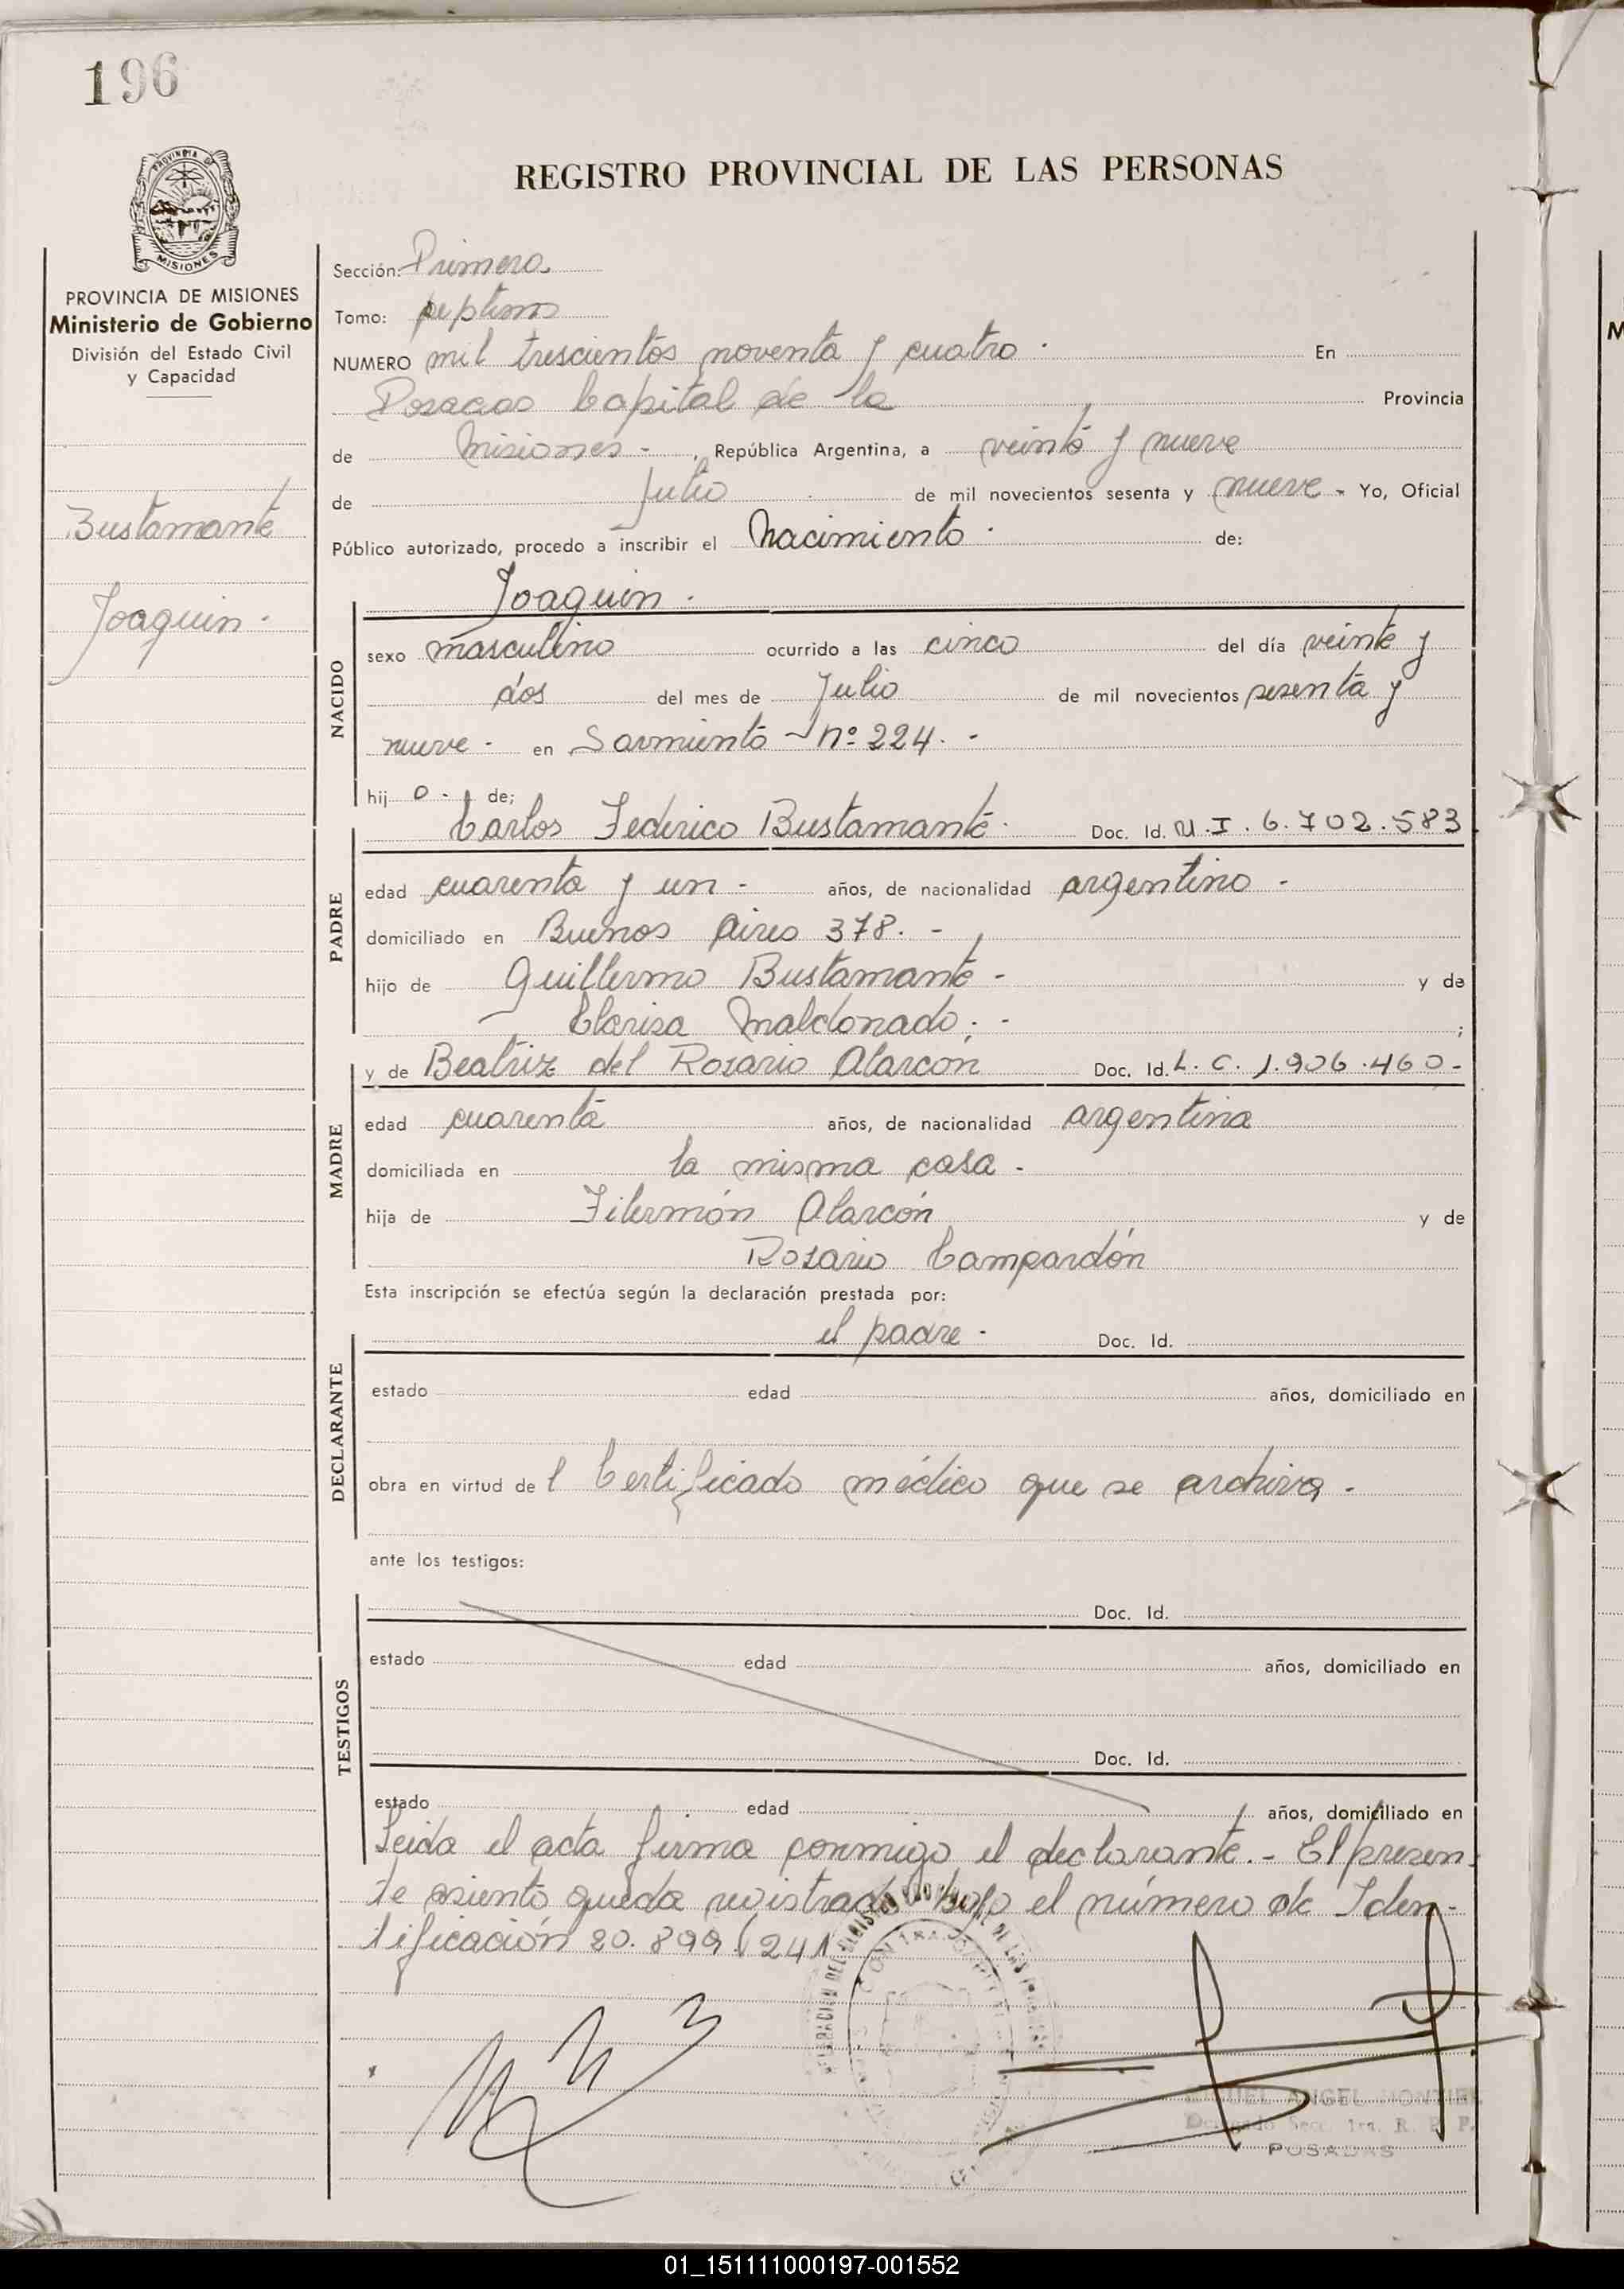 196
PROVINCIA DE
MISIONES
REGISTRO PROVINCIAL DE LAS PERSONAS
PROVINCIA DE MISIONES
Ministerio de Gobierno
División del Estado Civil
y Capacidad
Bustamante
Joaquin -
Sección: Primera
Tomo: septimo
NUMERO mil trescientos noventa y cuatro - En
Posadas Capital de la Provincia
de Misiones - , República Argentina, a veinte y nueve
de Julio de mil novecientos sesenta y nueve - Yo, Oficial
Público autorizado, procedo a inscribir el Nacimiento - de:
Joaquin -
NACIDO
sexo masculino ocurrido a las cinco del día veinte y
dos del mes de Julio de mil novecientos sesenta y
nueve - en Sarmiento Nº 224. -
hij o - de;
Carlos Federico Bustamante - Doc. Id. M.I. 6.702.583
PADRE
edad cuarenta y un - años, de nacionalidad argentino -
domiciliado en Buenos Aires 378. -
hijo de Guillermo Bustamante - y de
Clarisa Maldonado; - ;
y de Beatriz del Rosario Alarcón Doc. Id. L.C. 1.906.460 -
MADRE
edad cuarenta años, de nacionalidad argentina
domiciliada en la misma casa -
hija de Filermón Alarcón y de
Rosario Campardón
Esta inscripción se efectúa según la declaración prestada por:
el padre - Doc. Id.
DECLARANTE
estado edad años, domiciliado en
obra en virtud de l Certificado médico que se archiva -
ante los testigos:
TESTIGOS
Doc. Id.
estado edad años, domiciliado en
Doc. Id.
estado edad años, domiciliado en
Leida el acta firma conmigo el declarante. - El presen
te asiento queda registrado bajo el número de Iden-
tificación 20.899.241
MIGUEL ANGEL MONTIEL
Delegado Secc. 1ra. R. P. P.
POSADAS
01_151111000197-001552